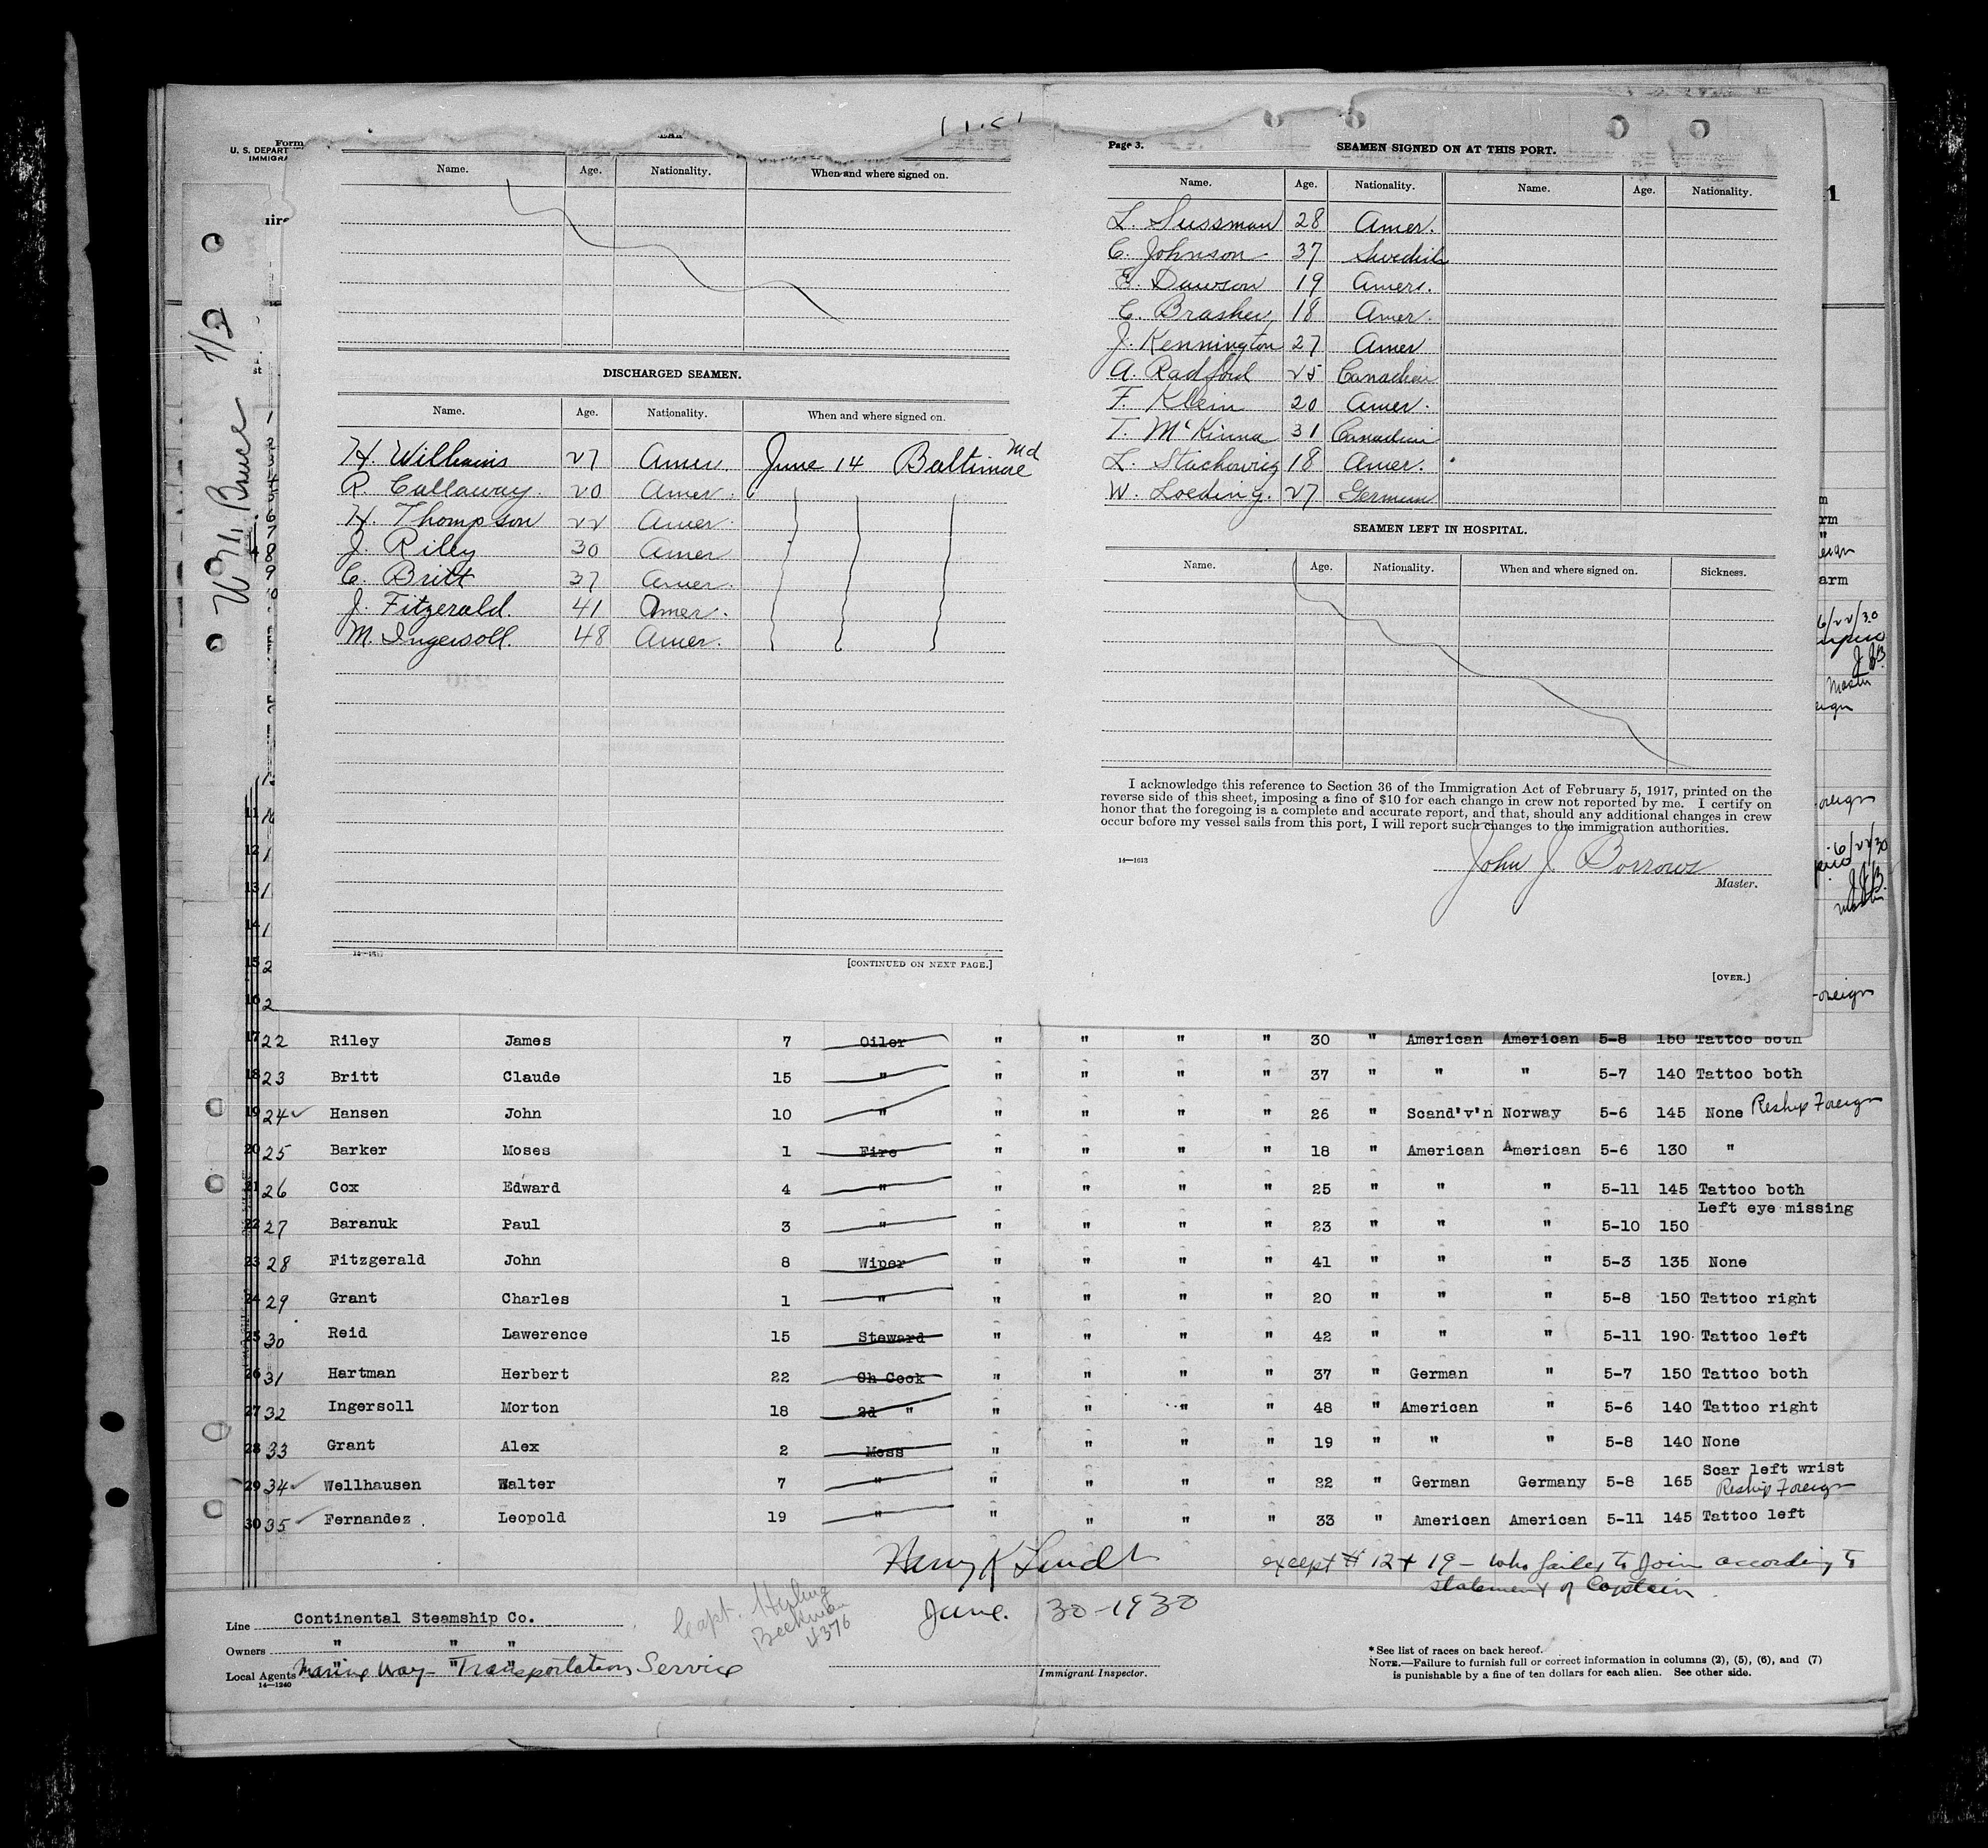 Form
U. S. DEPART
IMMIGRA
Wm. Bruce 7/2
Name. Age. Nationality. When and where signed on.
DISCHARGED SEAMEN.
Name. Age. Nationality. When and where signed on.
H. Williams 27 Amer June 14 Baltimore Md
R. Callaway. 20 Amer.
H. Thompson 22 Amer.
J. Riley 30 Amer
C. Britt 37 Amer.
J. Fitzgerald. 41 Amer.
M. Ingersoll. 48 Amer.
14—1613
[CONTINUED ON NEXT PAGE.]
Page 3.
SEAMEN SIGNED ON AT THIS PORT.
Name. Age. Nationality. Name. Age. Nationality.
L. Sussman 28 Amer.
C. Johnson 37 Swedish
E. Dawson 19 Amer.
C. Brasher 18 Amer.
J. Kennington 27 Amer
A. Radford 25 Canadian
F. Klein 20 Amer.
T. McKinna 31 Canadian
L. Stachowig 18 Amer.
W. Loeding. 27 German
SEAMEN LEFT IN HOSPITAL.
Name. Age. Nationality. When and where signed on. Sickness.
I acknowledge this reference to Section 36 of the Immigration Act of February 5, 1917, printed on the
reverse side of this sheet, imposing a fine of $10 for each change in crew not reported by me. I certify on
honor that the foregoing is a complete and accurate report, and that, should any additional changes in crew
occur before my vessel sails from this port, I will report such changes to the immigration authorities.
14—1613
John J. Borrows
Master.
[OVER.]
17 22 Riley James 7 Oiler " " " " 30 " American American 5-8 150 Tattoo both
18 23 Britt Claude 15 " " " " " 37 " " " 5-7 140 Tattoo both
19 24 Hansen John 10 " " " " " 26 " Scand'v'n Norway 5-6 145 None Reship Foreign
20 25 Barker Moses 1 Fire " " " " 18 " American American 5-6 130 "
21 26 Cox Edward 4 " " " " " 25 " " " 5-11 145 Tattoo both
Left eye missing
22 27 Baranuk Paul 3 " " " " " 23 " " " 5-10 150
23 28 Fitzgerald John 8 Wiper " " " " 41 " " " 5-3 135 None
24 29 Grant Charles 1 " " " " " 20 " " " 5-8 150 Tattoo right
25 30 Reid Lawerence 15 Steward " " " " 42 " " " 5-11 190 Tattoo left
26 31 Hartman Herbert 22 Ch Cook " " " " 37 " German " 5-7 150 Tattoo both
27 32 Ingersoll Morton 18 2d " " " " " 48 " American " 5-6 140 Tattoo right
28 33 Grant Alex 2 Mess " " " " 19 " " " 5-8 140 None
29 34 Wellhausen Walter 7 " " " " " 22 " German Germany 5-8 165 Scar left wrist
Reship Foreign
30 35 Fernandez Leopold 19 " " " " " 33 " American American 5-11 145 Tattoo left
except # 12 + 19 - who failed to join according to
statement of Captain
June 30-1930
Line Continental Steamship Co.
Owners " " "
Local Agents Marine Way - Transportation Service
14—1240
Capt.
Beekman
4376
Immigrant Inspector.
* See list of races on back hereof.
NOTE.—Failure to furnish full or correct information in columns (2), (5), (6), and (7)
is punishable by a fine of ten dollars for each alien. See other side.